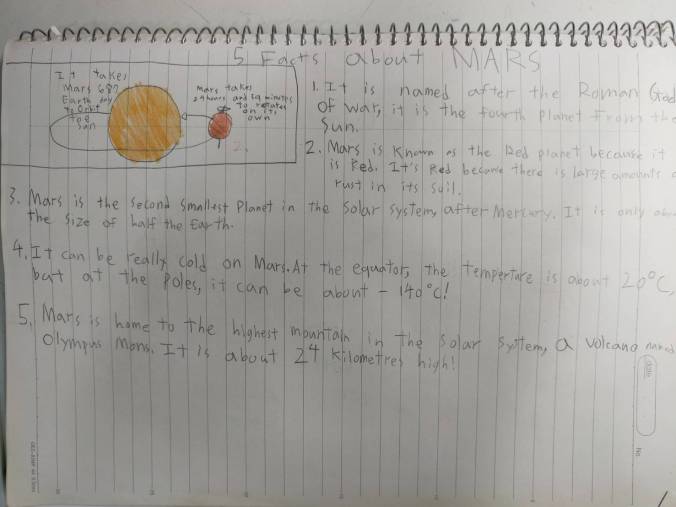 5 Facts about MARS
It takes
Mars 687
Earth days
to Orbit
the
sun
Mars takes
24 hours and 39 minutes
to rotates
on its
own
1. It is named after the Roman God
of war, it is the fourth planet from the
Sun.
2. Mars is Known as the Red planet because it
is Red. It's Red because there is large amounts
rust in its soil.
3. Mars is the second smallest Planet in the Solar System, after Mercury. It is only
the size of half the Earth.
4. It can be really cold on Mars. At the equator, the temperture is about 20°C,
but at the Poles, it can be about - 140°C!
5. Mars is home to the highest mountain in the Solar System, a volcano named
Olympus Mons. It is about 24 Kilometres high!
date
No